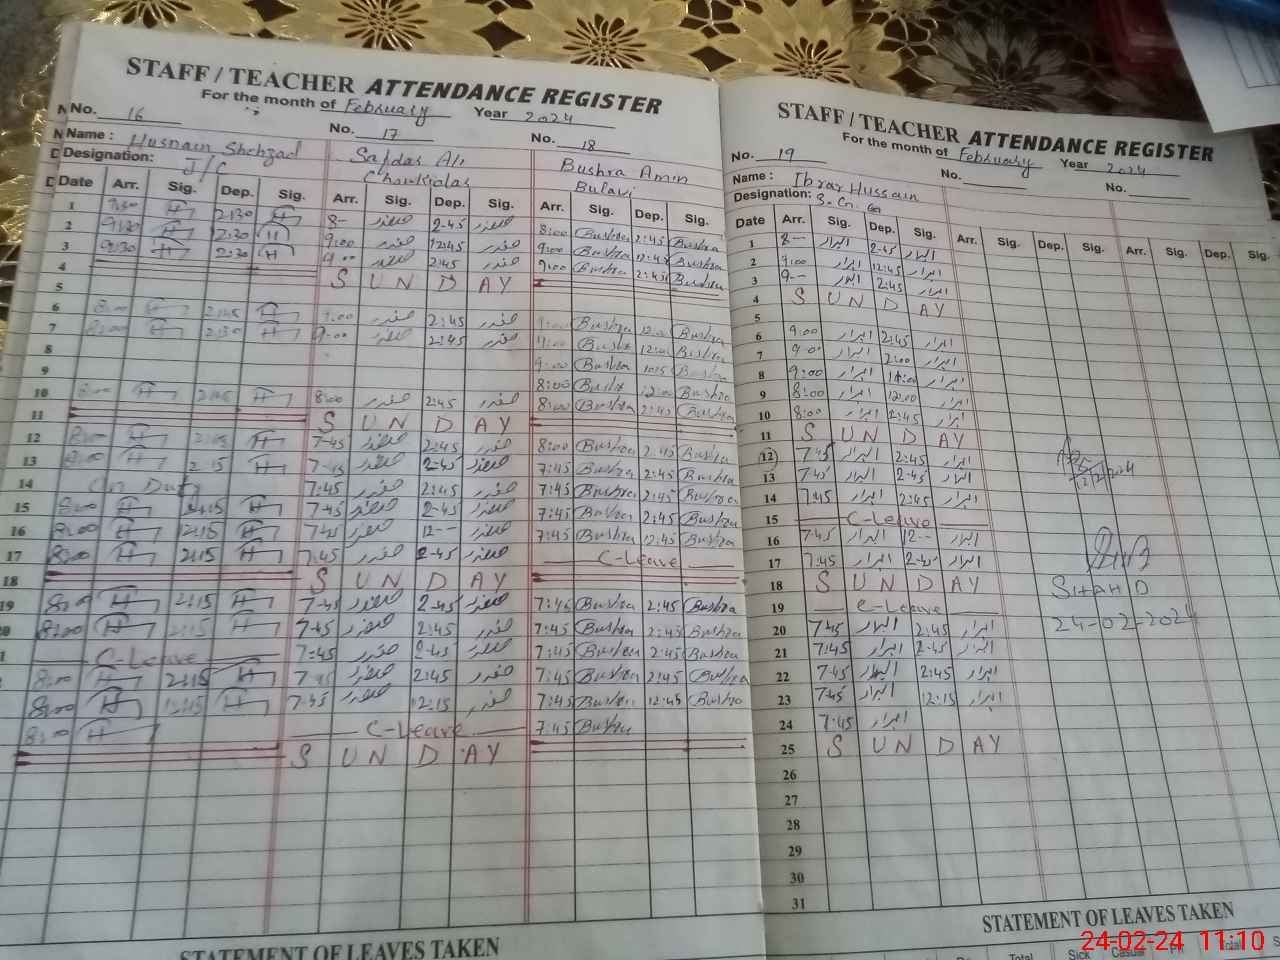 STAFF / TEACHER ATTENDANCE REGISTER
For the month of February Year 2024
No. 16 No. 17 No. 18
Name : Husnain Shehzad Safdar Ali Bushra Amin
Designation: J/C Chowkidar Bulavi
Date Arr. Sig. Dep. Sig. Arr. Sig. Dep. Sig. Arr. Sig. Dep. Sig.
1 9:30 H 2:30 H 8- صفدر 2-45 صفدر 8:00 Bushra 2:45 Bushra
2 9:30 H 2:30 H 9:00 صفدر 12:45 صفدر 9:00 Bushra 12:45 Bushra
3 9:30 H 2:30 H 9:00 صفدر 2:45 صفدر 9:00 Bushra 2:45 Bushra
4 S U N D A Y
5
6 8:00 H 2:45 H 9:00 صفدر 2:45 صفدر 9:00 Bushra 12:00 Bushra
7 8:00 H 2:30 H 9:00 صفدر 2:45 صفدر 9:00 Bushra 12:00 Bushra
8 9:00 Bushra Bushra
9 8:00 Bushra 12:00 Bushra
10 8:00 H 2:45 H 8:00 صفدر 2:45 صفدر 8:00 Bushra 2:45 Bushra
11 S U N D A Y
12 8:00 H H 7-45 صفدر 2:45 صفدر 8:00 Bushra 2:45 Bushra
13 8:00 H 2:15 H 7-45 صفدر 2-45 صفدر 7:45 Bushra 2:45 Bushra
14 On Duty 7:45 صفدر 2:45 صفدر 7:45 Bushra 2:45 Bushra
15 8:00 H 2:15 H 7-45 صفدر 2-45 صفدر 7:45 Bushra 2:45 Bushra
16 8:00 H 12:15 H 7-45 صفدر 12-- صفدر 7:45 Bushra 12:45 Bushra
17 8:00 H 2:15 H 7:45 صفدر 2-45 صفدر C-Leave
18 S U N D A Y
19 8:00 H 2:15 H 7-45 صفدر 2-45 صفدر 7:45 Bushra 2:45 Bushra
20 8:00 H 2:15 H 7-45 صفدر 2:45 صفدر 7:45 Bushra 2:45 Bushra
C-Leave 7:45 صفدر 2-45 صفدر 7:45 Bushra 2:45 Bushra
8:00 H 2:15 H 7-45 صفدر 2:45 صفدر 7:45 Bushra 2:45 Bushra
8:00 H 12:15 H 7-45 صفدر 12:15 صفدر 7:45 Bushra 12:45 Bushra
8:00 H C-Leave 7:45 Bushra
S U N D A Y
STATEMENT OF LEAVES TAKEN
STAFF / TEACHER ATTENDANCE REGISTER
For the month of February Year 2024
No. 19 No. No.
Name : Ibrar Hussain
Designation:
Date Arr. Sig. Dep. Sig. Arr. Sig. Dep. Sig. Arr. Sig. Dep. Sig.
1 8-- ابرار 2-45 ابرار
2 9:00 ابرار 12:45 ابرار
3 9-- ابرار 2:45 ابرار
4 S U N D A Y
5
6 9:00 ابرار 2:45 ابرار
7 9:00 ابرار 2:00 ابرار
8 9:00 ابرار ابرار
9 8:00 ابرار 12:00 ابرار
10 8:00 ابرار 2:45 ابرار
11 S U N D A Y
12 7:45 ابرار 2:45 ابرار
13 7-45 ابرار 2-45 ابرار
14 7:45 ابرار 2:45 ابرار
15 C-Leave
16 7:45 ابرار 12-- ابرار
17 7:45 ابرار 2-45 ابرار
18 S U N D A Y
19 C-Leave
20 7:45 ابرار 2:45 ابرار
21 7:45 ابرار 2-45 ابرار
22 7-45 ابرار 2:45 ابرار
23 7-45 ابرار 12:15 ابرار
24 7:45 ابرار
25 S U N D A Y
26
27
28
29
30
31
24-02-2024
STATEMENT OF LEAVES TAKEN
Total Sick Casual
24-02-24 11:10